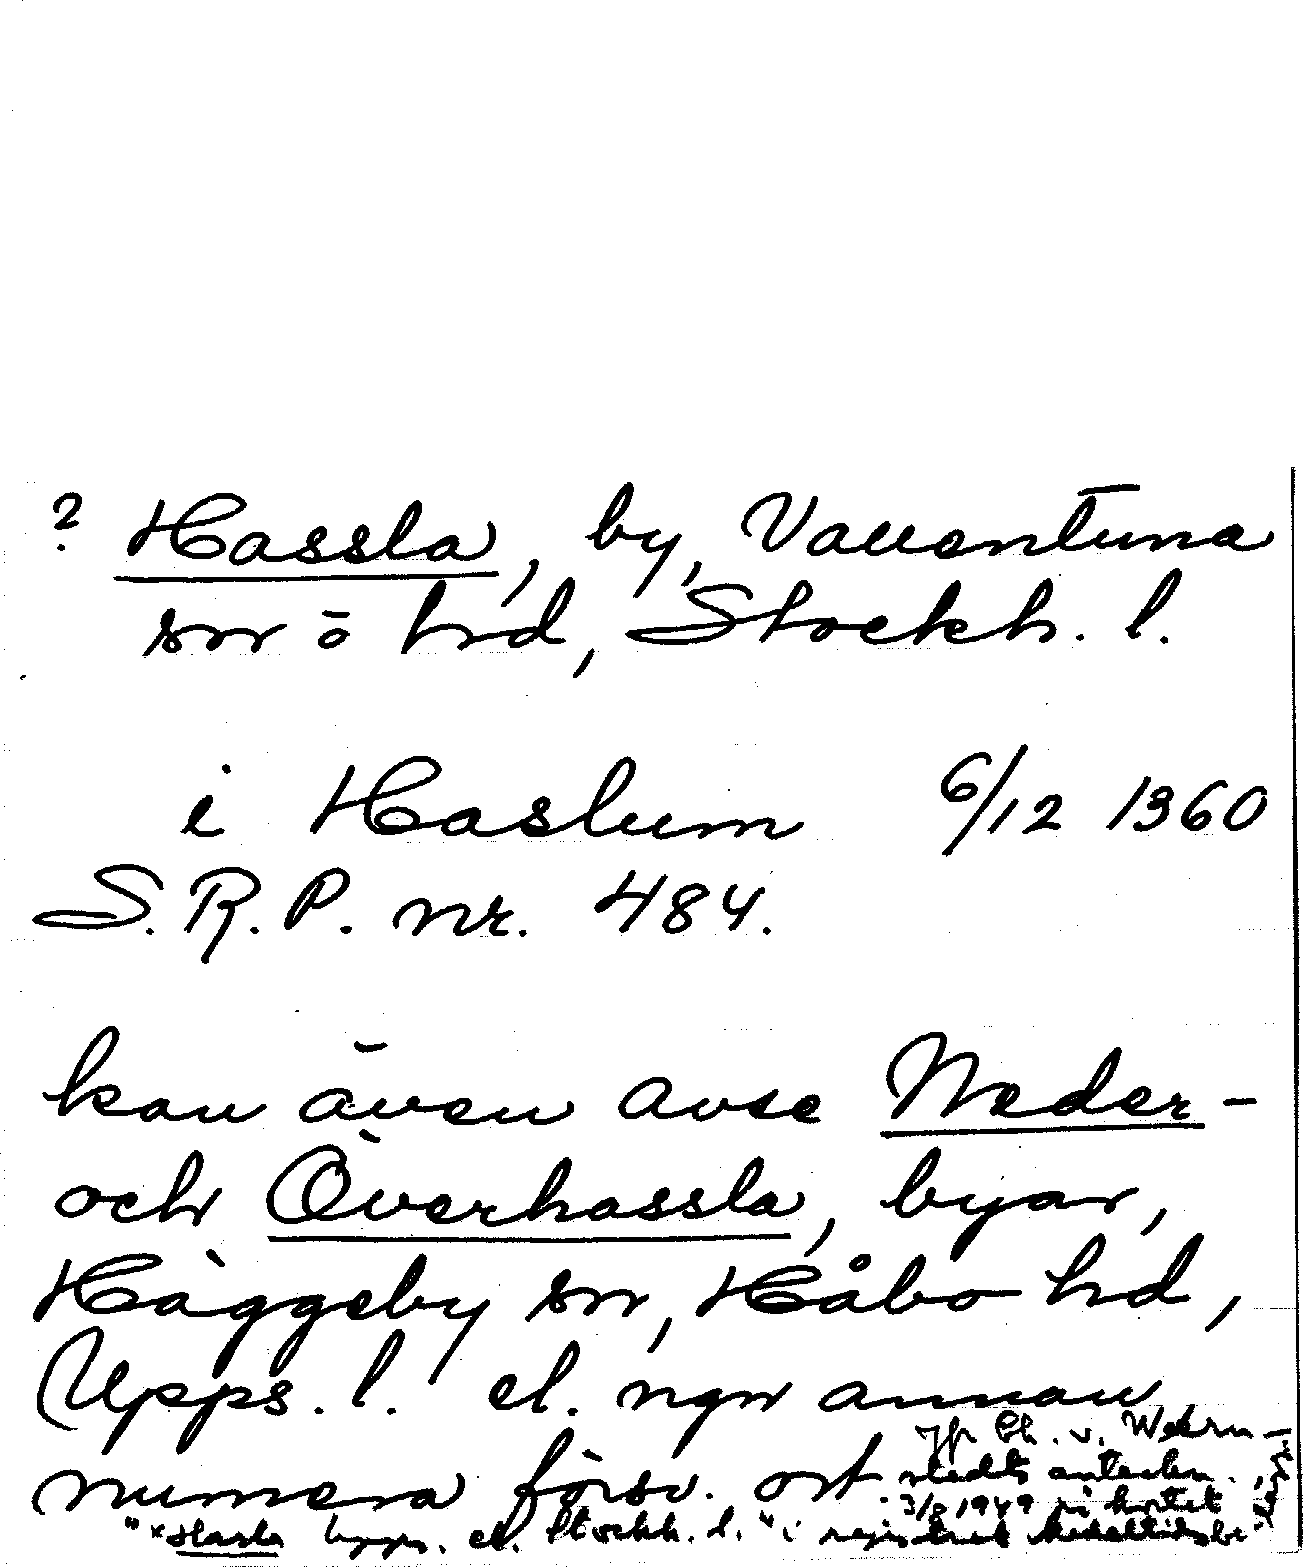 ? Hassla, by, Vallentuna
sn o hd, Stockh. l.
i Haslum 6/12 1360
S.R.P. nr. 484.
kan även avse Neder-
och Överhassla, byar,
Häggeby sn, Håbo hd,
Upps. l. el. ngn annan
numera försv. ort
Jfr Ch. v. Wern-
stedts anteckn.
3/8 1949 på kortet
"×Hasla Upps. el. Stockh. l." i registret